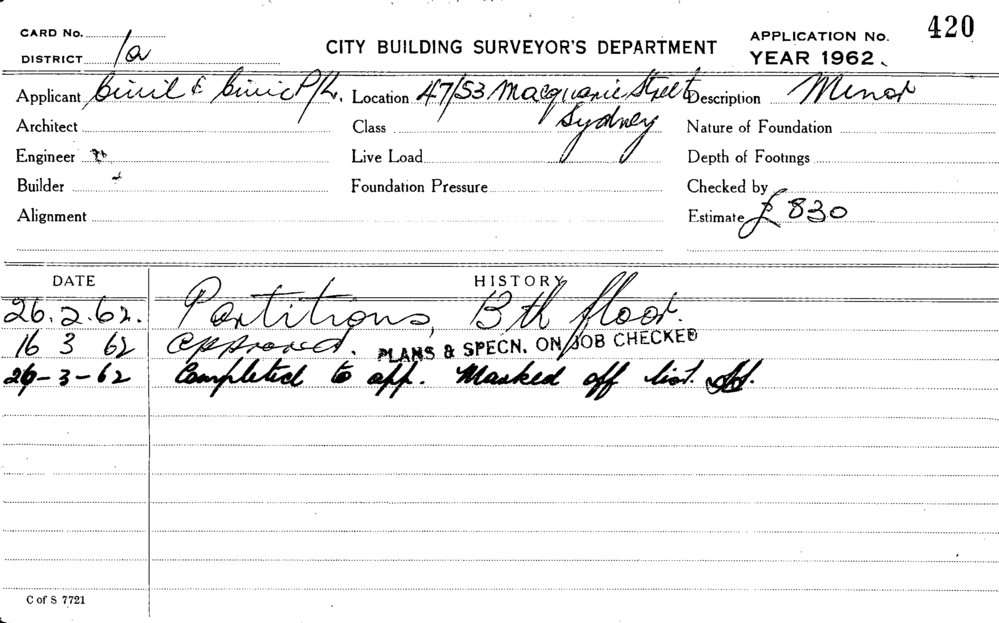 CARD No. 420
DISTRICT 1a CITY BUILDING SURVEYOR'S DEPARTMENT APPLICATION No. YEAR 1962.
Applicant Civil & Civic P/L. Location 47/53 Macquarie Street Description Minor
Sydney
Architect Class Nature of Foundation
Engineer Live Load Depth of Footings
Builder Foundation Pressure Checked by
Alignment Estimate £ 830
DATE HISTORY
26.2.62. Partitions, 13th floor.
16 3 62 Approved. PLANS & SPECN. ON JOB CHECKED
29-3-62 Completed to app. Marked off list.
C of S 7721